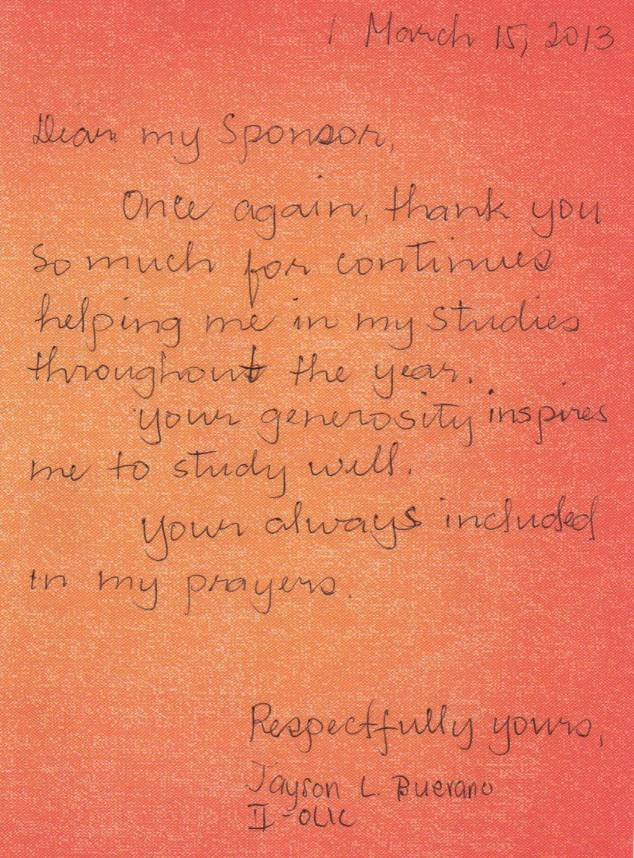 March 15, 2013
Dear my Sponsor,
Once again, thank you
so much for continues
helping me in my studies
throughout the year.
Your generosity inspires
me to study well.
Your always included
in my prayers.
Respectfully yours,
Jayson L. Buerano
II - OLIC